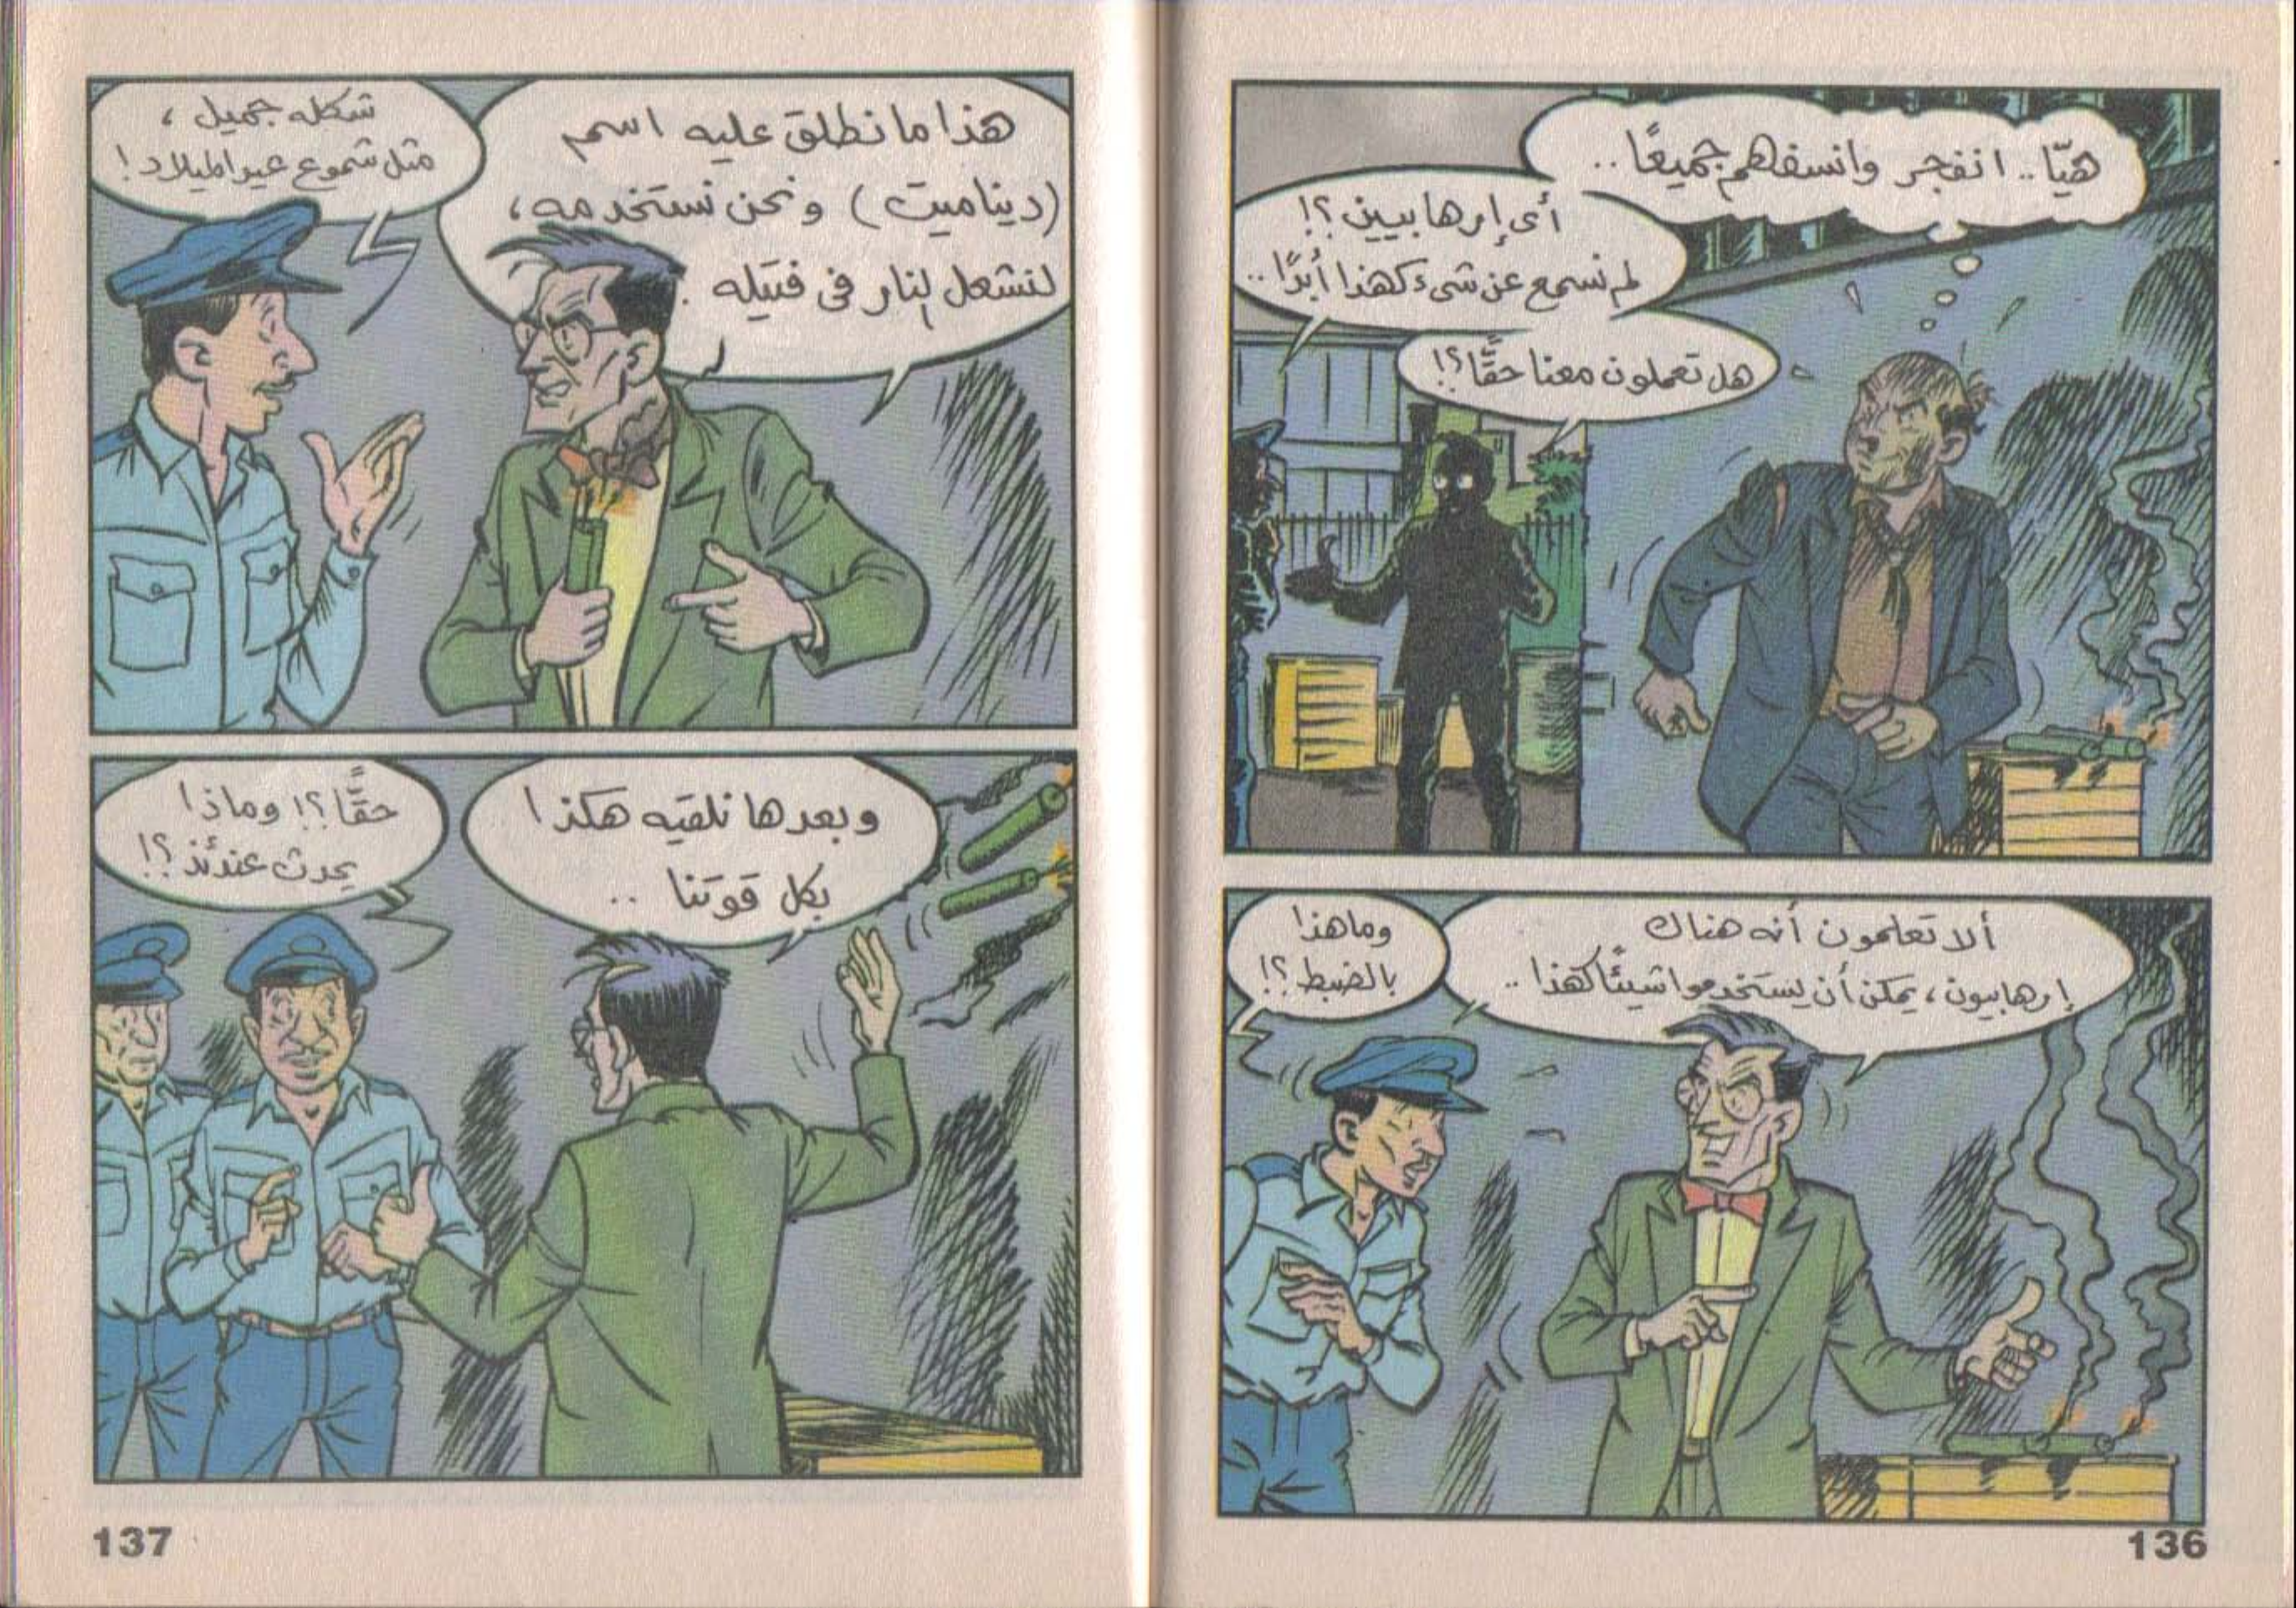 هيّا.. انفجر وانسفهم جميعًا..
أى إرهابيين؟!
لم نسمع عن شىء كهذا أبدًا..
هل تعملون معنا حقًّا؟!
ألا تعلمون أنه هناك
إرهابيون، يمكن أن يستخدموا شيئًا كهذا..
وما هذا
بالضبط؟!
136
هذا ما نطلق عليه اسم
(ديناميت) ونحن نستخدمه،
لنشعل النار فى فتيله.
شكله جميل،
مثل شموع عيد الميلاد!
وبعدها نلقيه هكذا
بكل قوتنا..
حقًّا؟! وماذا
يحدث عندئذ؟!
137